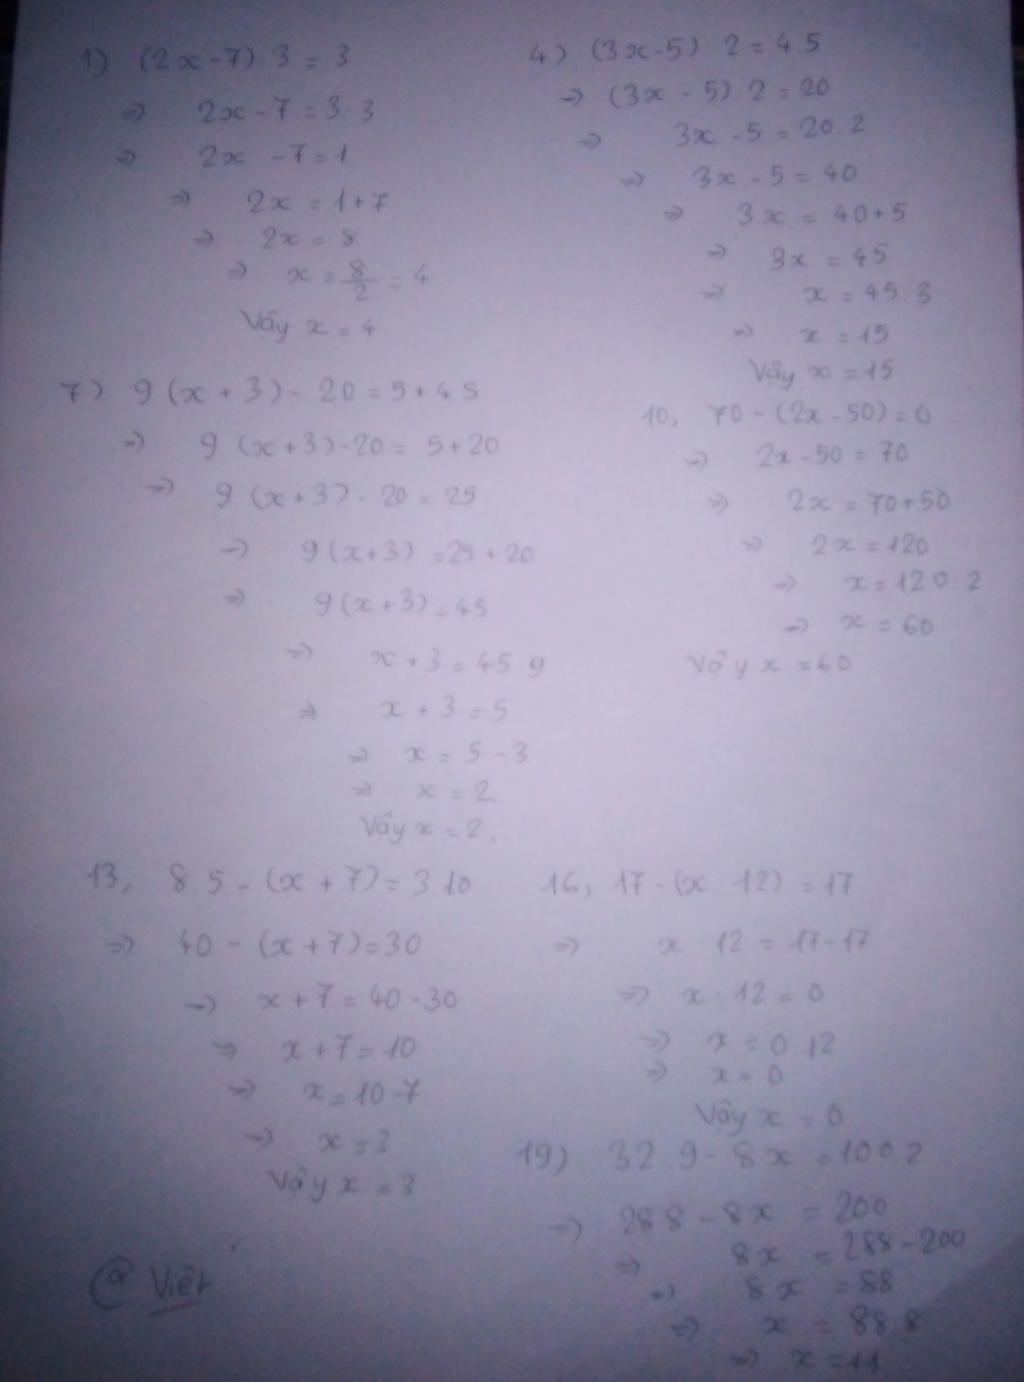 1) (2x-7) 3 = 3
=> 2x-7 = 3 3
=> 2x -7 = 1
=> 2x = 1+7
=> 2x = 8
=> x = 8/2 = 4
Vậy x = 4
4) (3x-5) 2 = 4.5
=> (3x - 5) 2 = 20
=> 3x -5 = 20 2
=> 3x - 5 = 40
=> 3x = 40+5
=> 3x = 45
=> x = 45 3
=> x = 15
Vậy x = 15
7) 9 (x + 3) - 20 = 5 + 4 5
=> 9 (x+3) -20 = 5+20
=> 9 (x+3) - 20 = 25
=> 9(x+3) = 25 + 20
=> 9(x+3) = 45
=> x+3 = 45 9
=> x + 3 = 5
=> x = 5 - 3
=> x = 2
Vậy x = 2.
10, 70 - (2x - 50) = 0
=> 2x - 50 = 70
=> 2x = 70+50
=> 2x = 120
=> x = 120 2
=> x = 60
Vậy x = 60
13, 8 5 - (x + 7) = 3 10
=> 40 - (x+7) = 30
=> x+7 = 40 - 30
=> x+7 = 10
=> x = 10 - 7
=> x = 3
Vậy x = 3
16, 17 - (x 12) = 17
=> x 12 = 17-17
=> x . 12 = 0
=> x = 0 12
=> x = 0
Vậy x = 0
19) 32 9 - 8x = 100 2
=> 288 - 8x = 200
=> 8x = 288 - 200
=> 8x = 88
=> x = 88 8
=> x = 11
@ Việt